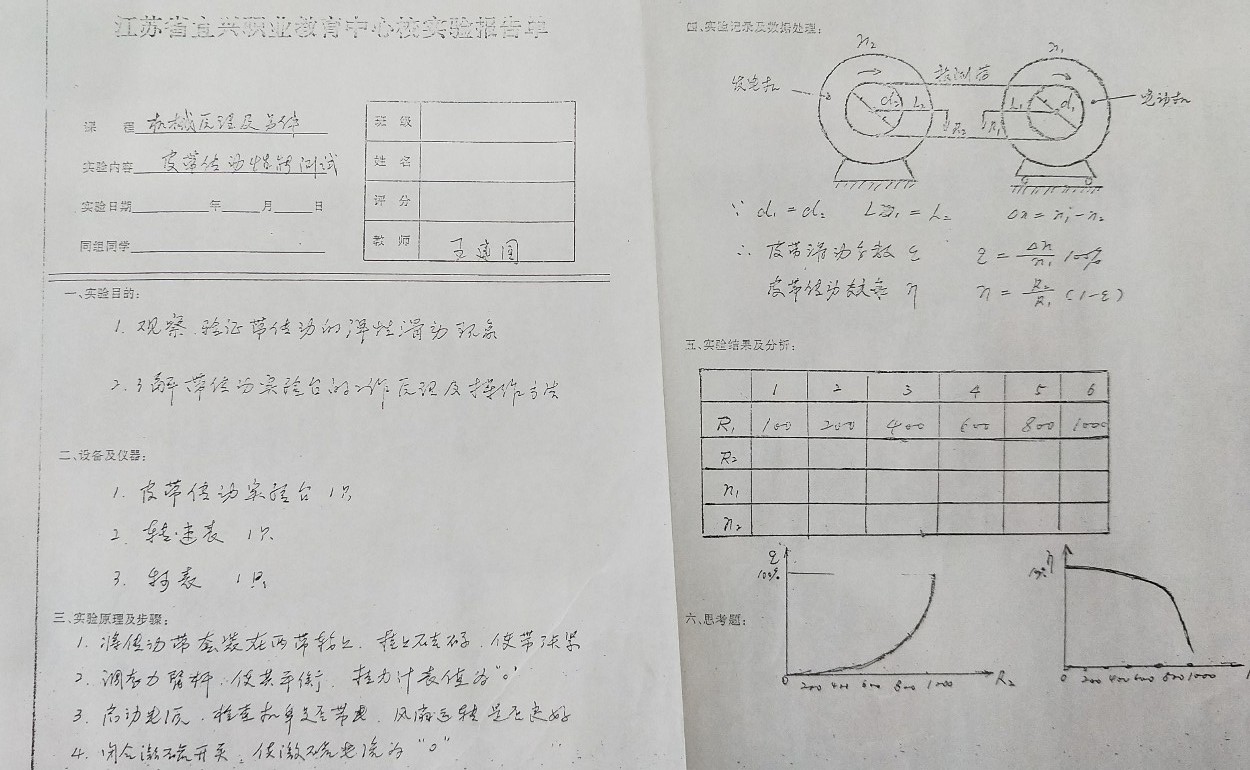 江苏省宜兴职业教育中心校实验报告单
课 程 机械原理及另件
实验内容 皮带传动特性测试
实验日期 年 月 日
同组同学
班 级
姓 名
评 分
教 师 王建国
一、实验目的:
1. 观察、验证带传动的弹性滑动现象
2. 了解带传动实验台的工作原理及操作方法
二、设备及仪器:
1. 皮带传动实验台 1只
2. 转速表 1只
3. 转表 1只
三、实验原理及步骤:
1. 将传动带套装在两带轮上、挂上砝码、使带张紧
2. 调在力臂杆、使其平衡、拉力计表值为"0"
3. 启动电源、检查机身是否带电、风扇运转是否良好
4. 闭合激磁开关、使激磁电流为"0"
四、实验记录及数据处理:
n₂ n₁
发电机 被测带 电动机
d₂ L₂ L₁ d₁
R₂ R₁
∵ d₁=d₂ L₁=L₂ Δn=n₁-n₂
∴ 皮带滑动系数 ε ε=Δn/n₁ 100%
皮带传动效率 η η=R₂/R₁(1-ε)
五、实验结果及分析:
1 2 3 4 5 6
R₁ 100 200 400 600 800 1000
R₂
n₁
n₂
ε
100%
0 200 400 600 800 1000 R₂
η
0 200 400 600 800 1000
六、思考题: